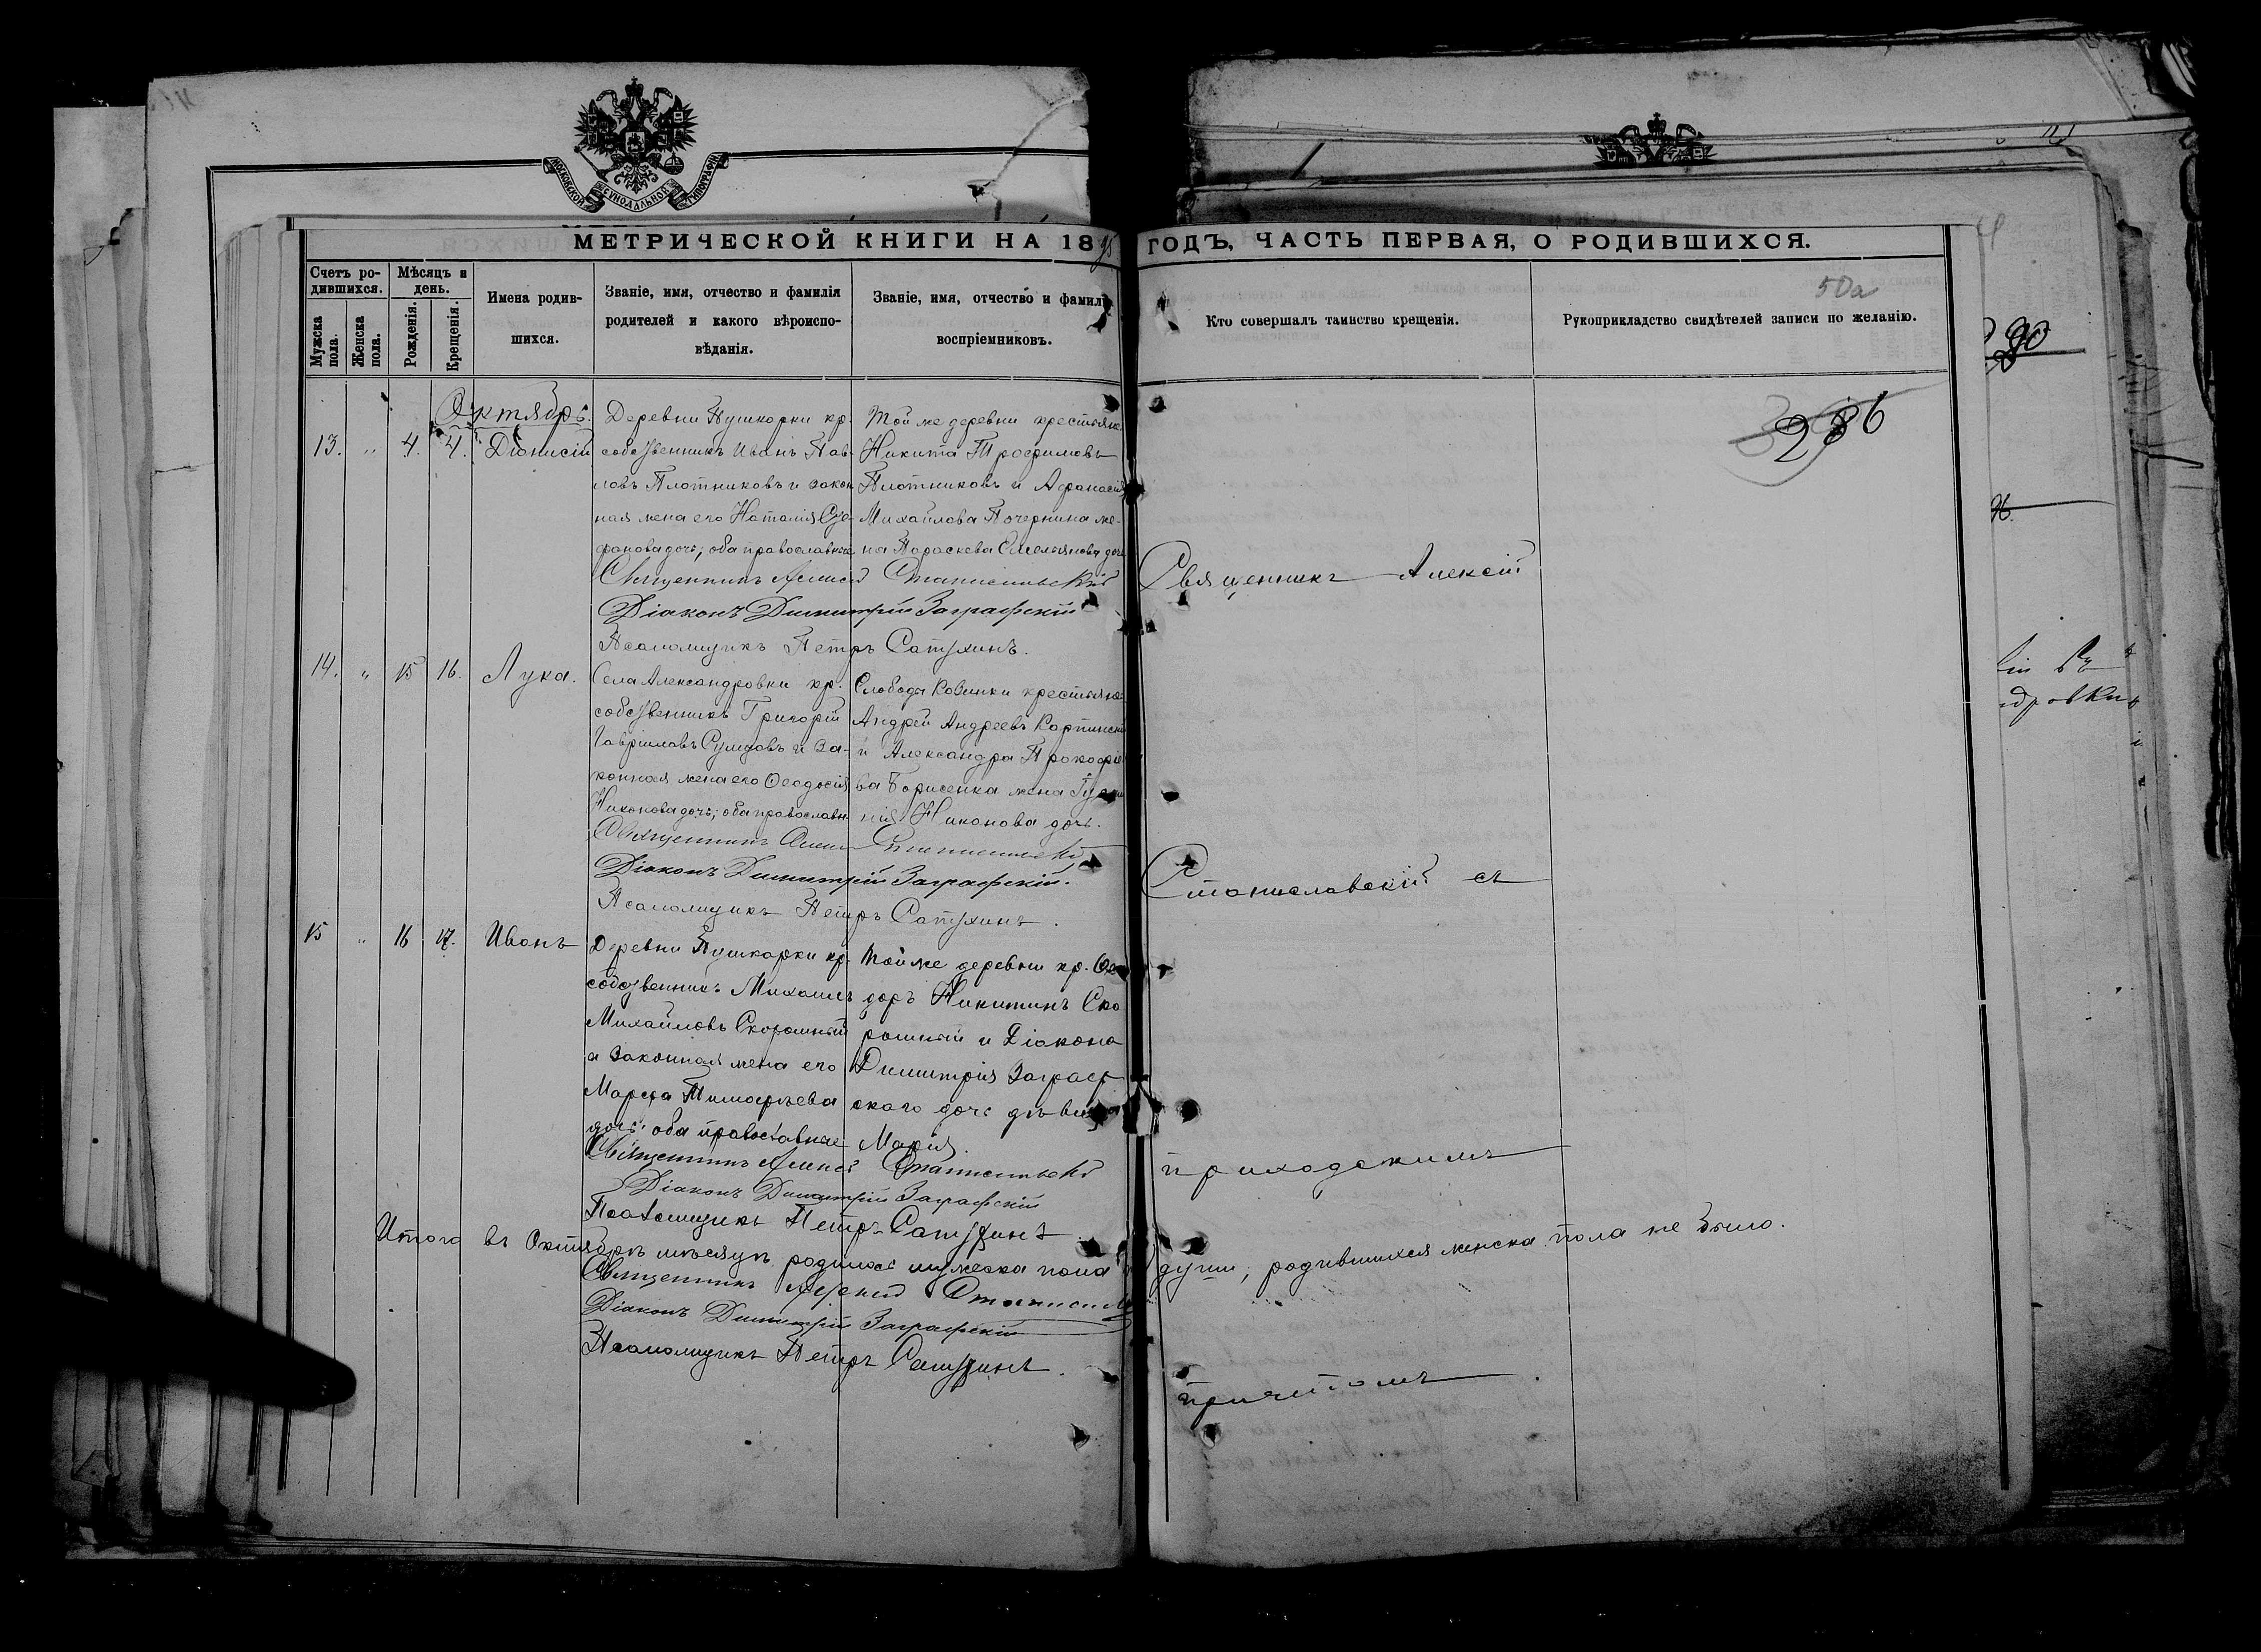 МОСКОВСКОЙ СУНОДАЛЬНОЙ ТИПОГРАФІИ
МЕТРИЧЕСКОЙ КНИГИ НА 1895 ГОДЪ, ЧАСТЬ ПЕРВАЯ, О РОДИВШИХСЯ.
Счетъ ро-
дившихся.
Мужска
пола.
Женска
пола.
Мѣсяцъ и
день.
Рожденія.
Крещенія.
Имена родив-
шихся.
Званіе, имя, отчество и фамилія
родителей и какого вѣроиспо-
вѣданія.
Званіе, имя, отчество и фамилія
воспріемниковъ.
Кто совершалъ таинство крещенія.
Рукоприкладство свидѣтелей записи по желанію.
50а
236
Октябрь.
13. " 4. 4. Діонисій
Деревни Пушкарки кр.
собственникъ Иванъ Пав-
ловъ Плотниковъ и закон
ная жена его Наталія Сте-
фанова дочь; оба православные
Той же деревни крестьяне
Никита Трофимовъ
Плотниковъ и Афанасія
Михайлова Почернина же-
на Параскева Емельянова дочь
Священникъ Алексій Станиславскій
Діаконъ Димитрій Заграфскій
Псаломщикъ Петръ Сатухинъ.
14. " 15 16. Лука.
Села Александровки кр.
собственникъ Григорій
Гавріиловъ Сумцовъ и за-
конная жена его Феодосія
Никонова дочь; оба православн.
Слободы Ковинки крестьяне
Андрей Андреевъ
и Александра Прокофіе
ва Борисенка жена
нія Никонова дочь.
Священникъ Алексій Станиславскій
Діаконъ Димитрій Заграфскій.
Псаломщикъ Петръ Сатухинъ.
15 " 16 17. Иванъ
Деревни Пушкарки кр.
собственникъ Михаилъ
Михайловъ Скорошный
и законная жена его
Марфа Тимофѣева
дочь; оба православные
Той же деревни кр. Фео
доръ Никитинъ Ско
рошный и Діакона
Димитрія Заграф
скаго дочь дѣвица
Марія.
Священникъ Алексій Станиславскій
Діаконъ Димитрій Заграфскій
Псаломщикъ Петръ Сатухинъ
Священникъ Алексій
Станиславскій съ
приходскимъ
причтомъ.
Итого въ Октябрѣ мѣсяцѣ родилось мужеска пола души; родившихся женска пола не было.
Священникъ Алексій Станиславскій
Діаконъ Димитрій Заграфскій
Псаломщикъ Петръ Сатухинъ.